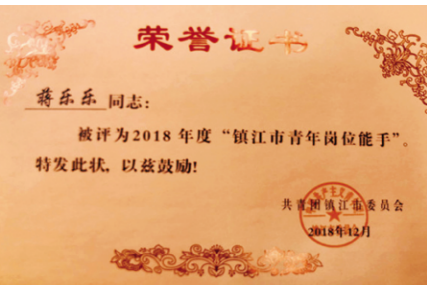 荣誉证书
蒋乐乐 同志：
被评为2018 年度“镇江市青年岗位能手”。
特发此状，以兹鼓励!
共青团镇江市委员会
2018年12月